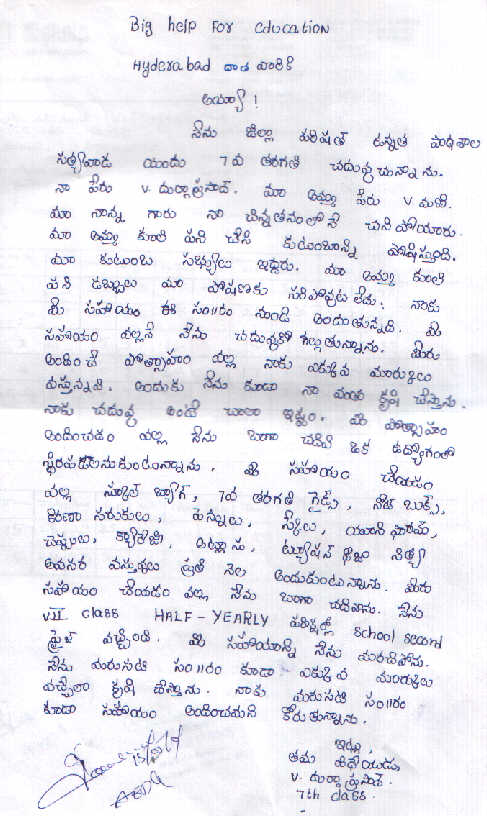 Big help For education
Hyderabad దాత వారికి
అయ్యా !
నేను జిల్లా పరిషత్ ఉన్నత పాఠశాల
సత్యవాడ యందు 7వ తరగతి చదువుచున్నాను.
నా పేరు v. దుర్గాప్రసాద్. మా అమ్మ పేరు v మణి.
మా నాన్న గారు నా చిన్నతనంలోనే చనిపోయారు.
మా అమ్మ కూలి పని చేసి కుటుంబాన్ని పోషిస్తుంది.
మా కుటుంబ సభ్యులు ఇద్దరు. మా అమ్మ కూలి
పని డబ్బులు మా పోషణకు సరిపోవుట లేదు. నాకు
మీ సహాయం ఈ సం॥రం నుండి అందుతున్నది. మీ
సహాయం వల్లనే నేను చదువుకో గల్గుతున్నాను. మీరు
అందించే ప్రోత్సాహం వల్ల నాకు ఎక్కువ మార్కులు
వస్తున్నవి. అందుకు నేను కూడా నా వంతు కృషి చేస్తాను.
నాకు చదువు అంటే చాలా ఇష్టం. మీ ప్రోత్సాహం
అందించడం వల్ల నేను బాగా చదివి ఒక ఉద్యోగంలో
స్థిరపడాలనుకుంటున్నాను. మీ సహాయం చేయడం
వల్ల స్కూల్ బ్యాగ్, 7వ తరగతి గైడ్స్, నోట్ బుక్స్,
కిరాణా సరుకులు, పెన్నులు, స్కేలు, యూనిఫారమ్,
చెప్పులు, క్యారేజీ, ట్యూషన్ ఫీజు నిత్య
అవసర వస్తువులు ప్రతి నెల అందుకుంటున్నాను. మీరు
సహాయం చేయడం వల్ల నేను బాగా చదివాను. నేను
VII class HALF - YEARLY పరీక్షల్లో school second
ప్లేస్ వచ్చింది. మీ సహాయాన్ని నేను మరచిపోను.
నేను మరుసటి సం॥రం కూడా ఎక్కువ మార్కులు
వచ్చేలా కృషి చేస్తాను. నాకు మరుసటి సం॥రం
కూడా సహాయం అందించమని కోరుతున్నాను.
ఇట్లు,
తమ విధేయుడు
v. దుర్గాప్రసాద్.
7th class.